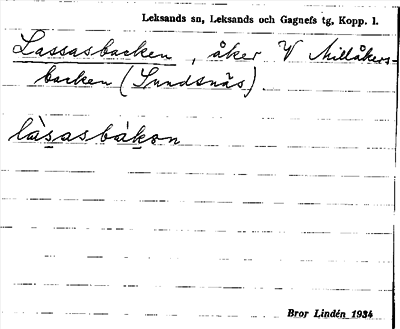 Leksands sn, Leksands och Gagnefs tg, Kopp. l.
Lassasbacken, åker V Millåkers-
backen (Sundsnäs).
làsasbàkən
Bror Lindén 1934